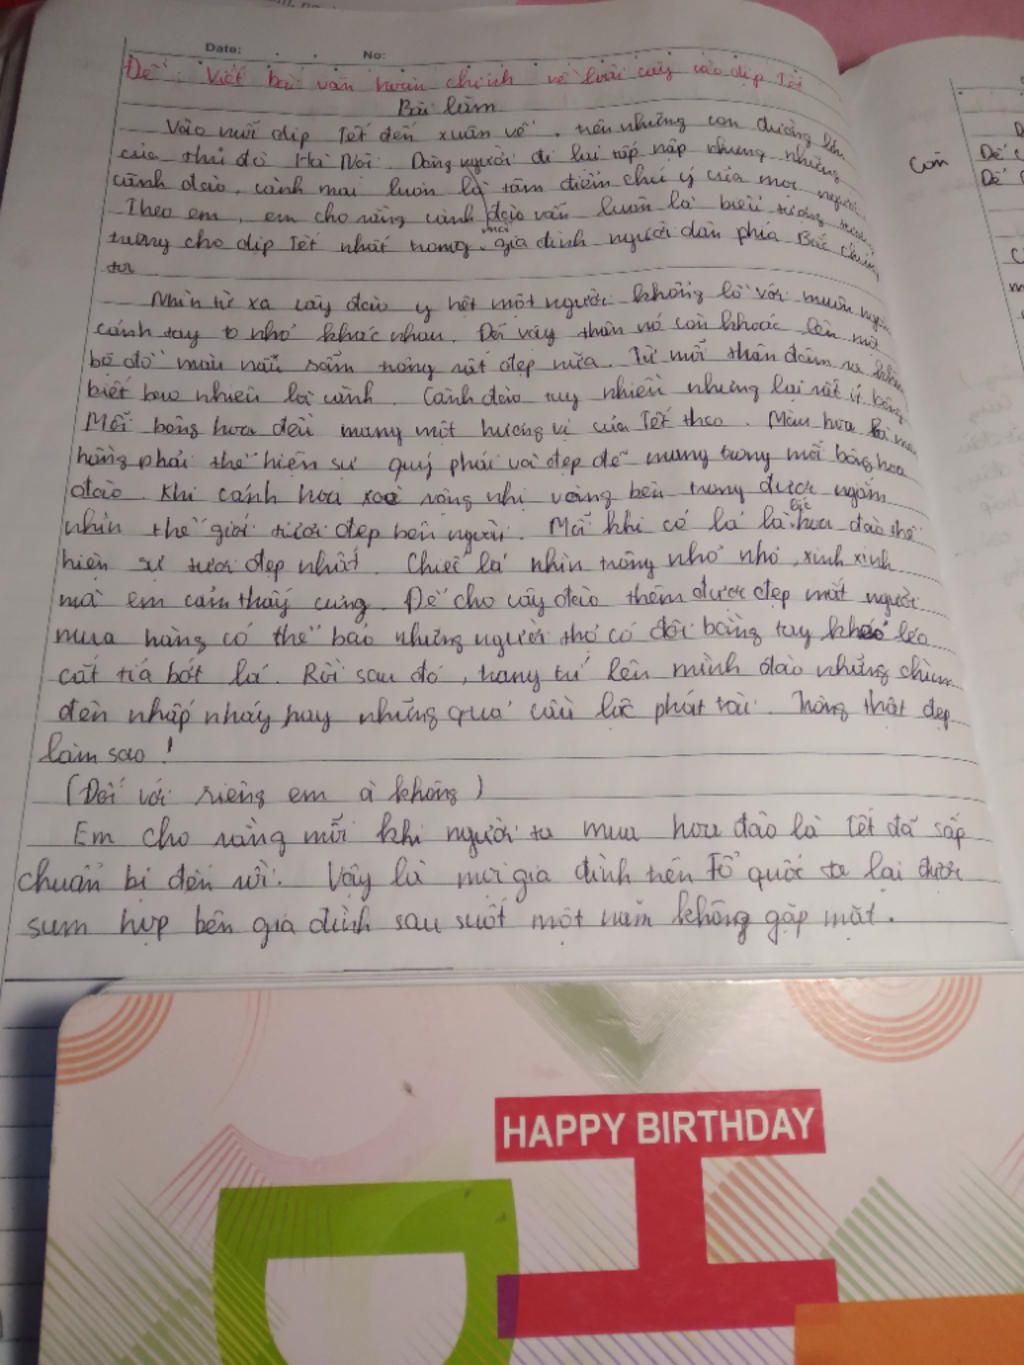 Date: No:
Đề: Viết bài văn hoàn chỉnh về loài cây vào dịp Tết
Bài làm
Vào mỗi dịp Tết đến xuân về, trên những con đường lớn
của thủ đô Hà Nội. Dòng người đi lại tấp nập nhưng những
cành đào, cành mai luôn là tâm điểm chú ý của mọi người.
Theo em, em cho rằng cành đào vẫn luôn là biểu tượng
trưng cho dịp Tết nhất trong mỗi gia đình người dân phía Bắc chúng
ta
Nhìn từ xa cây đào y hệt một người khổng lồ với muôn
cánh tay to nhỏ khác nhau. Đã vậy thân nó còn khoác lên một
bộ đồ màu nâu sẫm trông rất đẹp nữa. Từ mỗi thân đâm ra
biết bao nhiêu là cành. Cành đào tuy nhiều nhưng lại rất ít bông
Mỗi bông hoa đều mang một hương vị của Tết theo. Màu hoa là màu
hồng phải thể hiện sự quý phái và đẹp đẽ mang trong mỗi bông hoa
đào. Khi cánh hoa xoè rộng nhị vàng bên trong được ngắm
nhìn thế giới tươi đẹp bên ngoài. Mỗi khi có lá là lúc hoa đào thể
hiện sự tươi đẹp nhất. Chiếc lá nhìn trông nho nhỏ, xinh xinh
mà em cảm thấy cưng. Để cho cây đào thêm được đẹp mắt người
mua hàng có thể bảo những người thợ có đôi bàng tay khéo léo
cắt tỉa bớt lá. Rồi sau đó, trang trí lên mình đào những chùm
đèn nhấp nháy hay những quả cầu lộc phát tài. Trông thật đẹp
làm sao!
(Đối với riêng em à không)
Em cho rằng mỗi khi người ta mua hoa đào là Tết đã sắp
chuẩn bị đến rồi. Vậy là mọi gia đình trên Tổ quốc ta lại được
sum họp bên gia đình sau suốt một năm không gặp mặt.
Còn
Đề
Đề
HAPPY BIRTHDAY